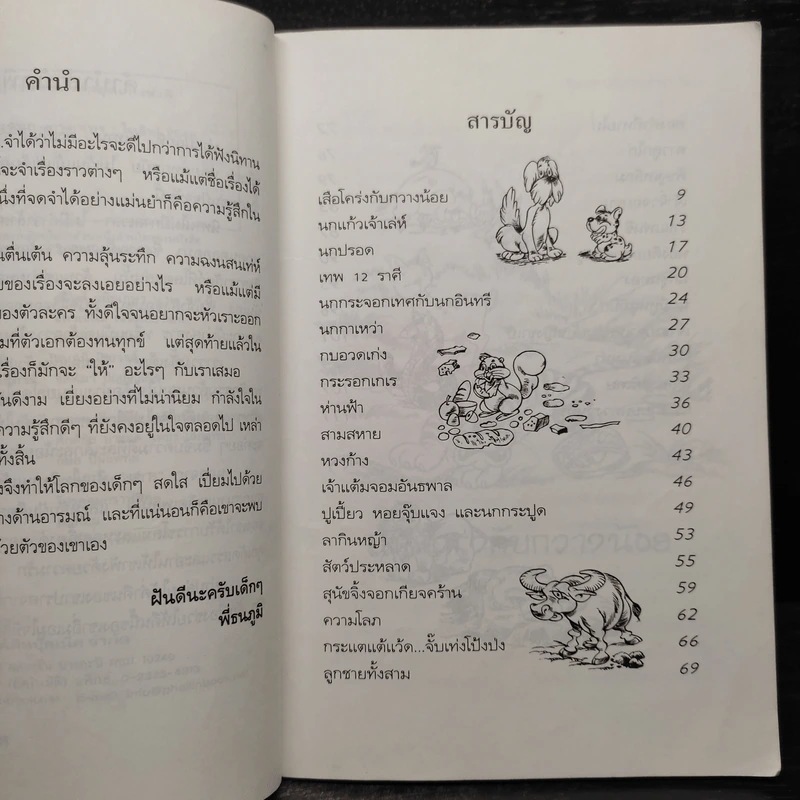 คำนำ
...จำได้ว่าไม่มีอะไรจะดีไปกว่าการได้ฟังนิทาน
จะจำเรื่องราวต่างๆ หรือแม้แต่ชื่อเรื่องได้
นึ่งที่จดจำได้อย่างแม่นยำก็คือความรู้สึกใน
นตื่นเต้น ความลุ้นระทึก ความฉงนสนเท่ห์
ของเรื่องจะลงเอยอย่างไร หรือแม้แต่มี
ของตัวละคร ทั้งดีใจจนอยากจะหัวเราะออก
มที่ตัวเอกต้องทนทุกข์ แต่สุดท้ายแล้วใน
เรื่องก็มักจะ "ให้" อะไรๆ กับเราเสมอ
ันดีงาม เยี่ยงอย่างที่ไม่น่านิยม กำลังใจใน
ความรู้สึกดีๆ ที่ยังคงอยู่ในใจตลอดไป เหล่า
ทั้งสิ้น
จึงทำให้โลกของเด็กๆ สดใส เปี่ยมไปด้วย
างด้านอารมณ์ และที่แน่นอนก็คือเขาจะพบ
ด้วยตัวของเขาเอง
ฝันดีนะครับเด็กๆ
พี่ธนภูมิ
สารบัญ
เสือโคร่งกับกวางน้อย 9
นกแก้วเจ้าเล่ห์ 13
นกปรอด 17
เทพ 12 ราศี 20
นกกระจอกเทศกับนกอินทรี 24
นกกาเหว่า 27
กบอวดเก่ง 30
กระรอกเกเร 33
ห่านฟ้า 36
สามสหาย 40
หวงก้าง 43
เจ้าแต้มจอมอันธพาล 46
ปูเปี้ยว หอยจุ๊บแจง และนกกระปูด 49
ลากินหญ้า 53
สัตว์ประหลาด 55
สุนัขจิ้งจอกเกียจคร้าน 59
ความโลภ 62
กระแตแต้แว้ด...จั๊บเท่งโป้งป่ง 66
ลูกชายทั้งสาม 69